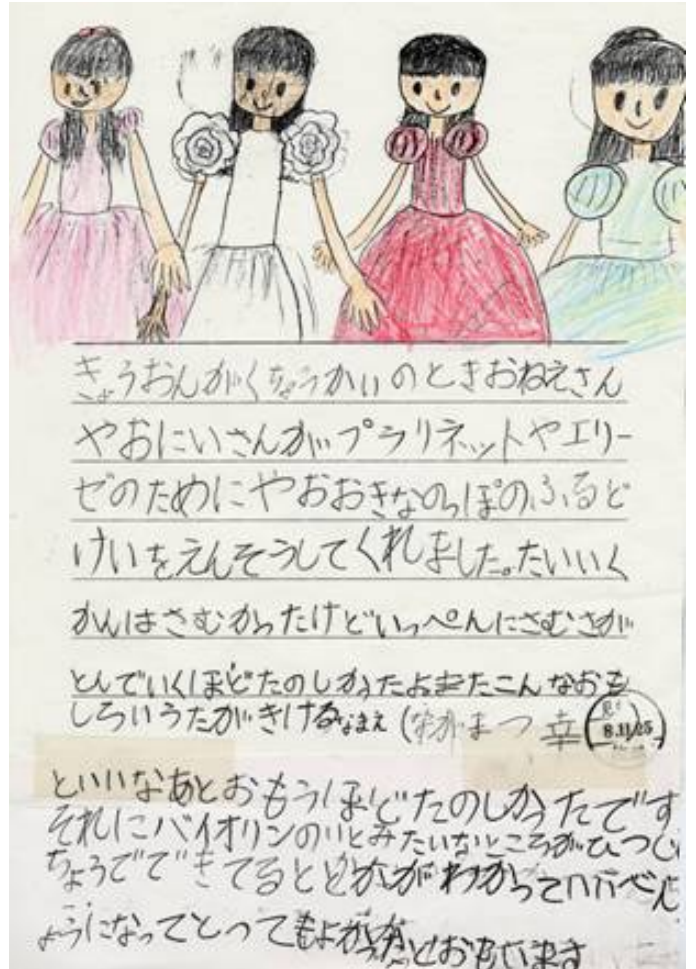 きょうおんがくちょうかいのときおねえさん
やおにいさんがプラリネットやエリー
ゼのためにやおおきなのっぽのふるど
けいをえんそうしてくれました。たいいく
かんはさむかったけどいっぺんにさむさが
とんでいくほどたのしかったよまたこんなおも
しろいうたがきけるなまえ(ながまつ 幸
8.11.25
といいなあとおもうほどたのしかったです
それにバイオリンのいとみたいなところがひつじ
ちょうでできてるとかがわかっていいべん
ようになってとってもよかったとおもいます